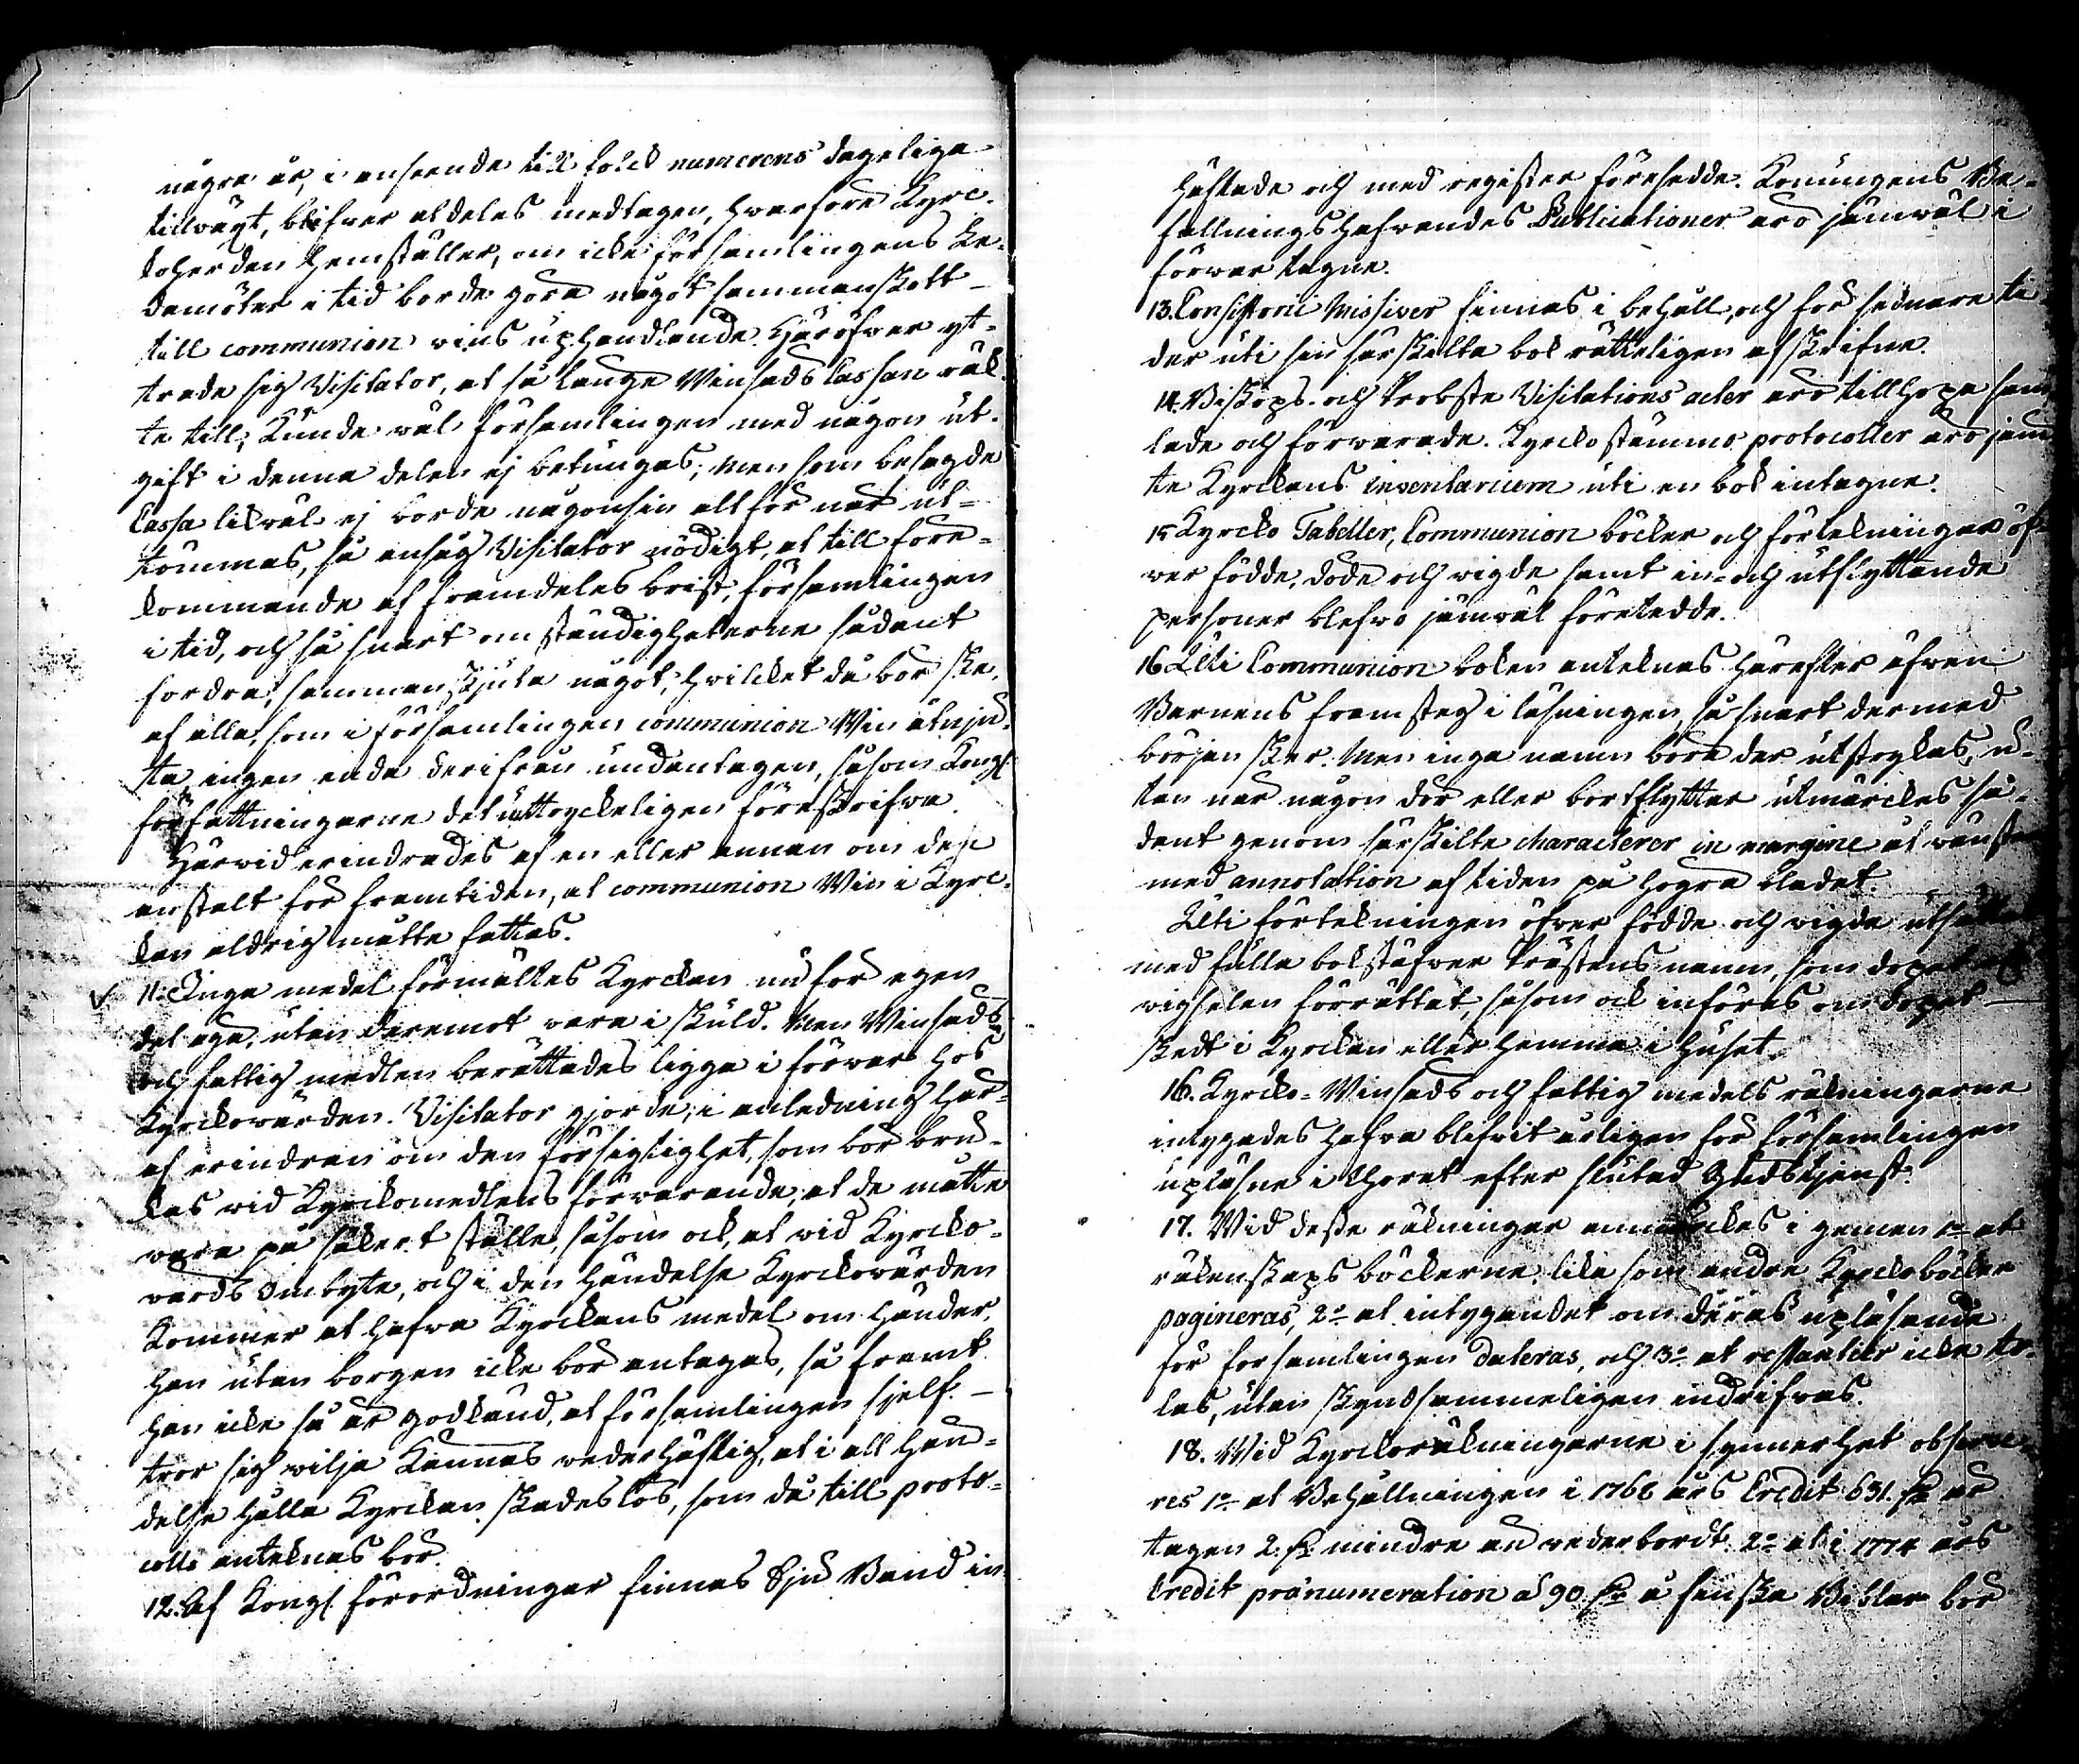 några år, i anseende till folck numerens dageliga
tillväxt, blifver aldeles medtagen, hvarföre Kyrc-
koherden hemställer, om icke församlingens Le-
damöter i tid borde göra något sammanskott
till communion vins uphandlande. Häröfver yt-
trade sig Visitator, at så länge Winsäds Cassan räk-
te till, kunde väl församlingen med någon ut-
gift i denna delen ej betungas; men som besagde
Cassa likväl ej borde någonsin alt för när ut-
tömmas, så ansåg Visitator nödigt, at till före-
kommande af framdeles brist, församlingen
i tid, och så snart omständigheterne sådant
fordra, sammanskjuta något; hvilcket då bör ske,
af alla, som i församlingen communion Win åtnju-
ta, ingen enda derifrån undantagen, såsom Kongl.
författningarne det uttryckeligen föreskrifva.
Härvid erindrades af en eller annan om dess
anstalt för framtiden, at communion Win i Kyrc-
kan aldrig måtte fattas.
11. Inga medel förmältes Kyrckan nu för egen
del äga, utan deremot vara i skuld. Men Winsäds
och fattig medlen berättades ligga i förvar hos
Kyrckovärden. Visitator gjorde, i anledning här-
af erindran om den försigtighet, som bör bru-
kas vid Kyrckomedlens förvarande, at de måtte
vara på säkert ställe, såsom ock, at vid Kyrcko-
värds ombyte, och i den händelse Kyrckovärden
kommer at hafva Kyrckans medel om händer,
han utan borgen icke bör antagas, så framt
han icke så är godkänd, at församlingen sjelf
tror sig vilja kännas vederhäftig, at i all hän-
delse hålla Kyrckan skadeslös, som då till proto-
colls anteknas bör.
12. Af Kongl. förordningar finnas Sju Band in-
häftade och med register försedde. Konungens Be-
fallningshafvandes Publicationer äro jämväl i
förvar tagne.
13. Consistorii Missiver finnas i behåll, och för sednare ti-
der uti sin särskilta bok rätteligen afskrifne.
14. Biskops- och Probste Visitations acter äro tillhopa sam-
lade och förvarade. Kyrckostämmo protocoller äro jäm-
te Kyrckans inventarium uti en bok intagne.
15 Kyrcko Tabeller, Communion böcker och förtekningar öf-
ver födde, döde och vigde samt in- och utflyttande
personer blefvo jämväl företedde.
16 Uti Communion boken anteknas härefter äfven
Barnens framsteg i läsningen, så snart dermed
början sker. Men inga namn böra der utstrykas, u-
tan när någon dör eller bortflyttar utmärckes så-
dant genom särskilte characterer in margine åt vänster
med annotation af tiden på högra bladet.
Uti förtekningen öfver födde och vigde utsättes
med fulla bokstäfver Prästens namn, som dopet och
vigselen förrättat, såsom ock införes om dopet
skedt i Kyrckan eller hemma i huset.
16. Kyrcko- Winsäds och fattig medels räkningarne
intygades hafva blifvit årligen för församlingen
upläsne i Choret efter slutad Gudstjenst.
17. Vid desse räkningar anmärckes i gemen 1o at
räkenskaps böckerne, lika som andre Kyrckoböcker
pagineras, 2o at intygandet om deras upläsande
för församlingen dateras, och 3o at restantier icke tå-
las, utan skyndsammeligen indrifvas.
18. Vid Kyrckoräkningarne i synnerhet observe-
res 1o at Behållningen i 1768 års Credit 631. är
tagen 2. mindre än vederbordt. 2o at i 1774 års
Credit pränumeration a 90. å finska Biblar bör